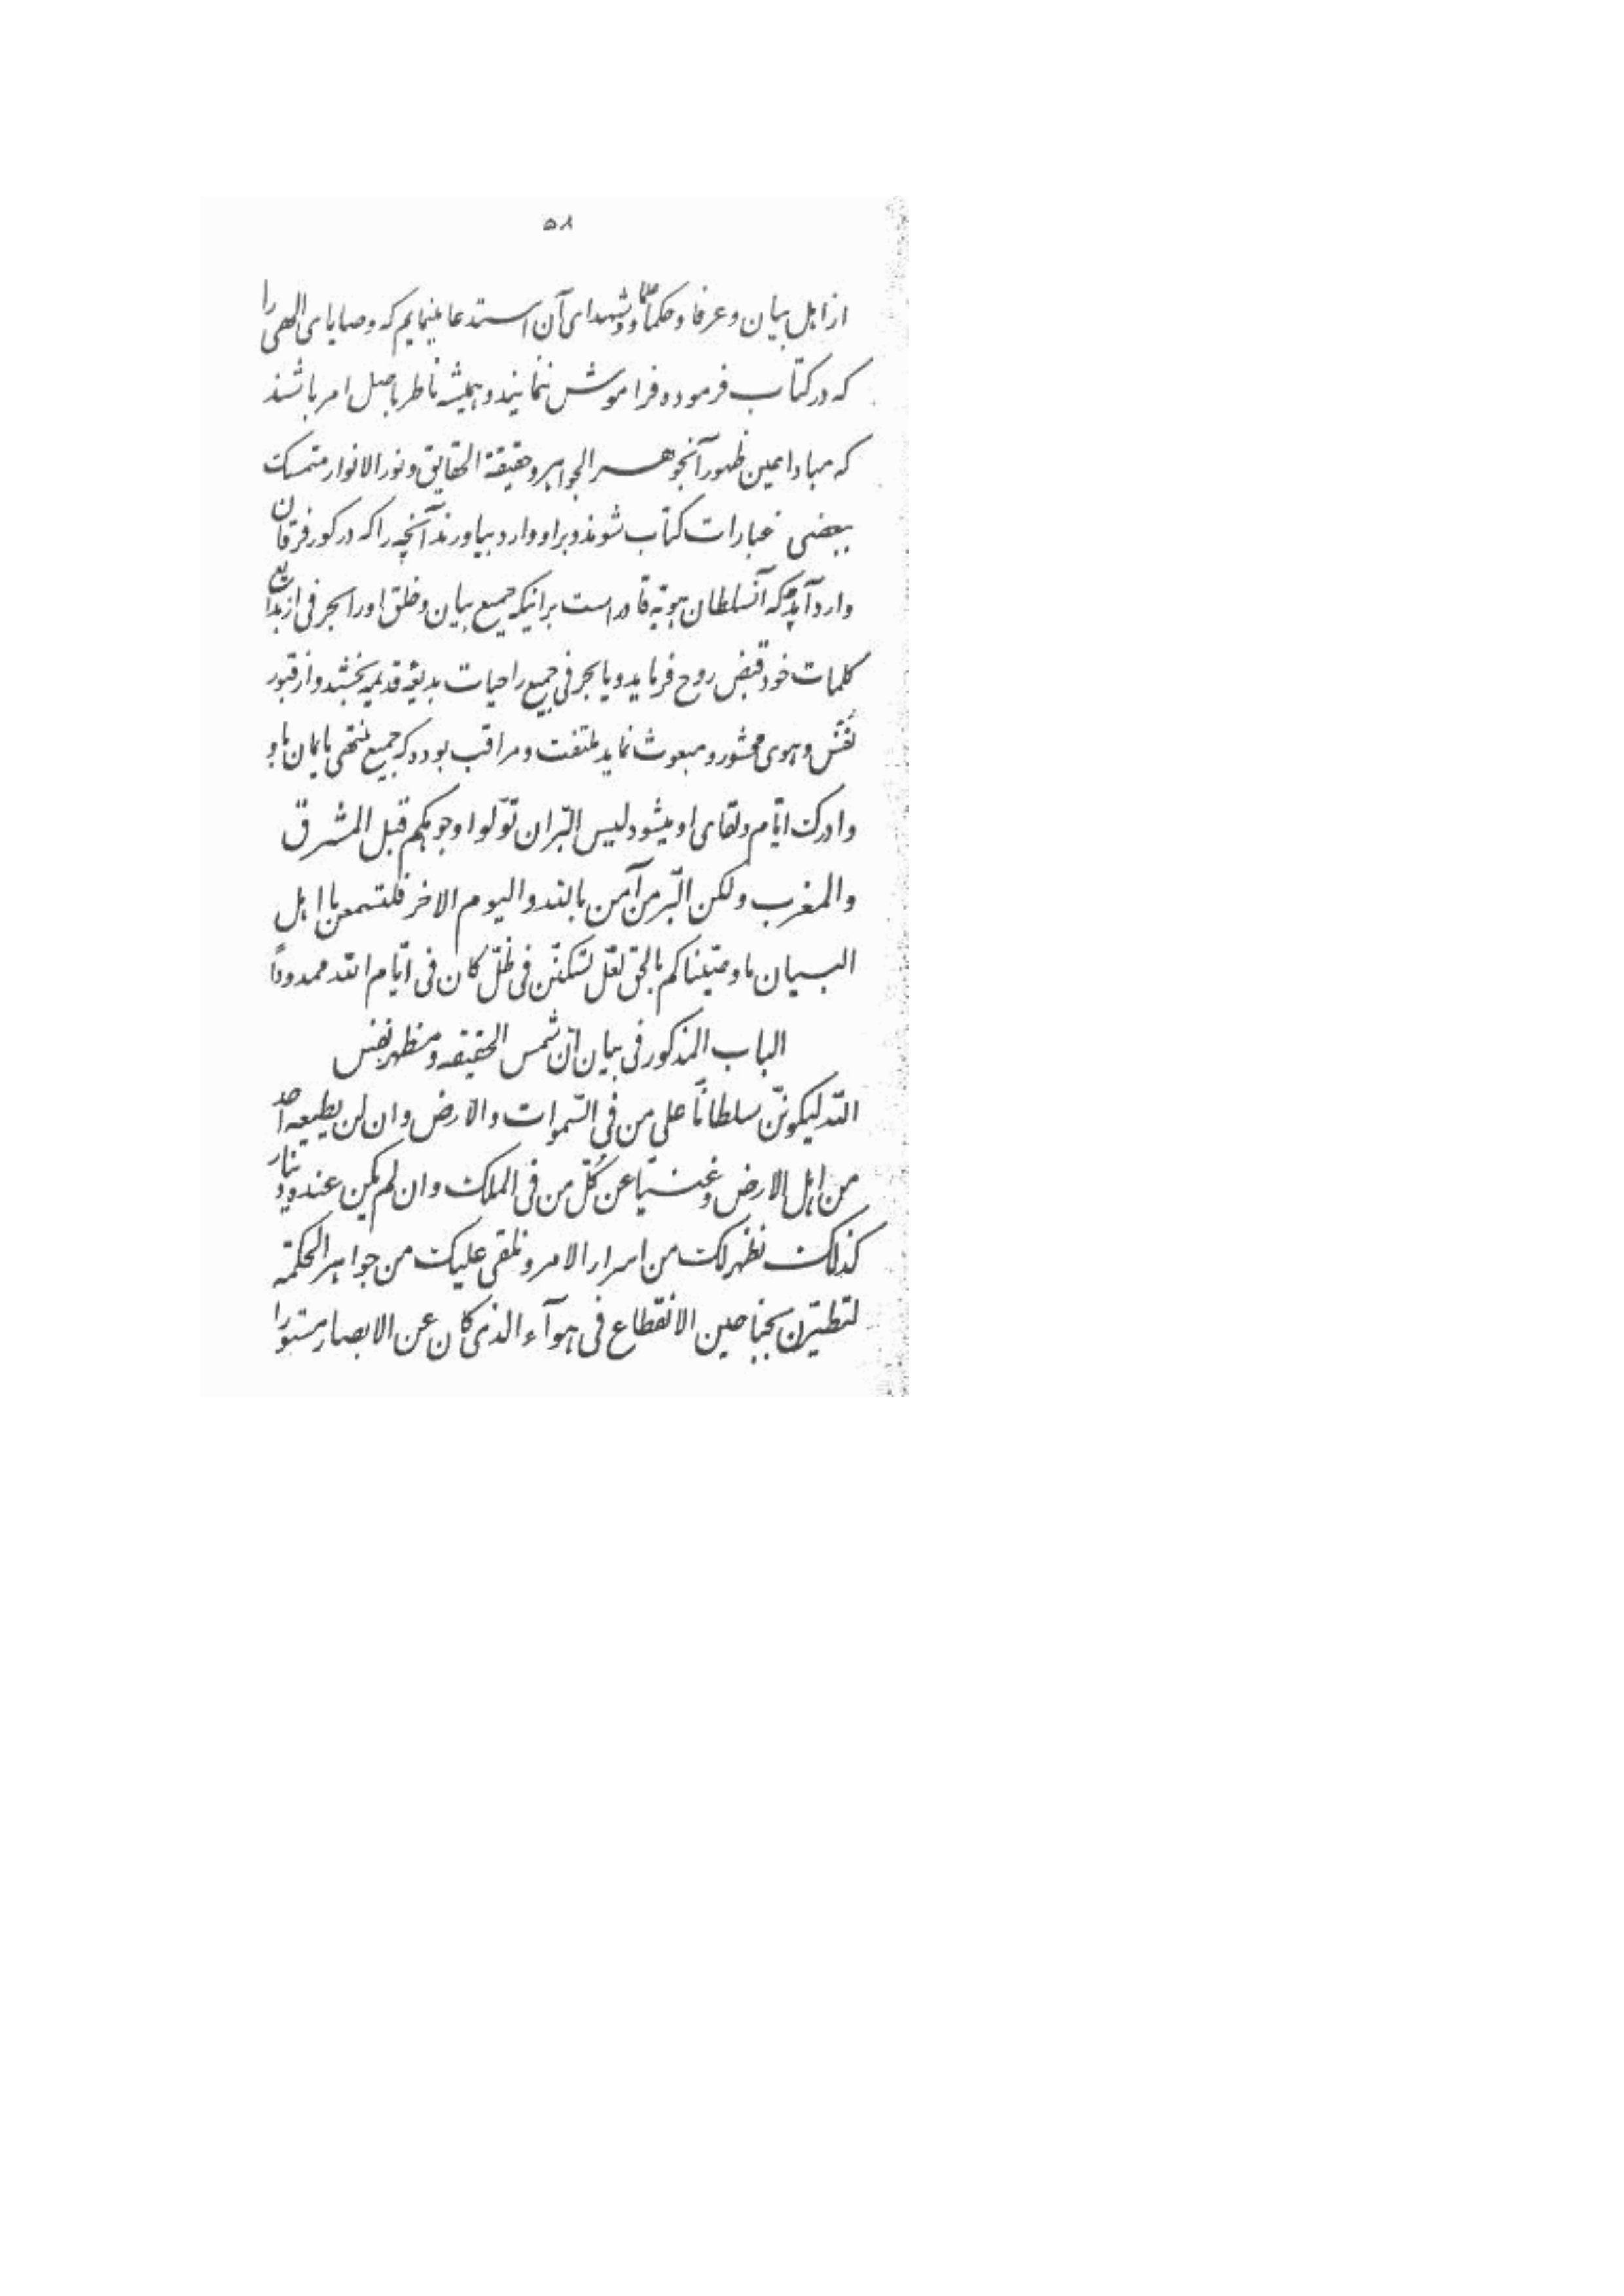 ۵۸
از اهل بیان و عرفا و حکما و علما و شهدای آن استدعا مینمایم که وصایای الهی را
که در کتاب فرموده فراموش ننمایند و همیشه ناظر باصل امر باشند
که مبادا حین ظهور آنجوهر الجواهر و حقیقة الحقایق و نور الانوار متمسک
ببعضی عبارات کتاب شوند و براو وارد بیاورند آنچه را که در کور فرقان
وارد آمد چه که آنسلطان هویّه قادر است بر اینکه جمیع بیان و خلق او را بحرفی از بدایع
کلمات خود قبض روح فرماید و یا بحرفی جمیع را حیات بدیعهٔ قدمیه بخشد و از قبور
نفس و هوی محشور و مبعوث نماید ملتفت و مراقب بوده که جمیع منتهی بایمان باو
و ادرک ایّام و لقای او میشود لیس البّر ان تولّوا وجوهکم قبل المشرق
والمغرب ولکن البّر من آمن بالله و الیوم الاخر فلتسمعن یا اهل
البیان ما وصّیناکم بالحق لعّل تسکننّ فی ظلّ کان فی ایّام الله ممدوداً
الباب المذکور فی بیان انّ شمس الحقیقه و مظهر نفس
الله لیکوننّ سلطاناً علی من فی السّموات والارض و ان لن یطیعه احد
من اهل الارض و غنیّا عن کُلّ من فی الملک و ان لم یکن عنده دینار
کذلک نظهر لک من اسرار الامر و نلقی علیک من جواهر الحکمة
لتطیّرن بجناحین الانقطاع فی هوآء الذی کان عن الابصار مستورا